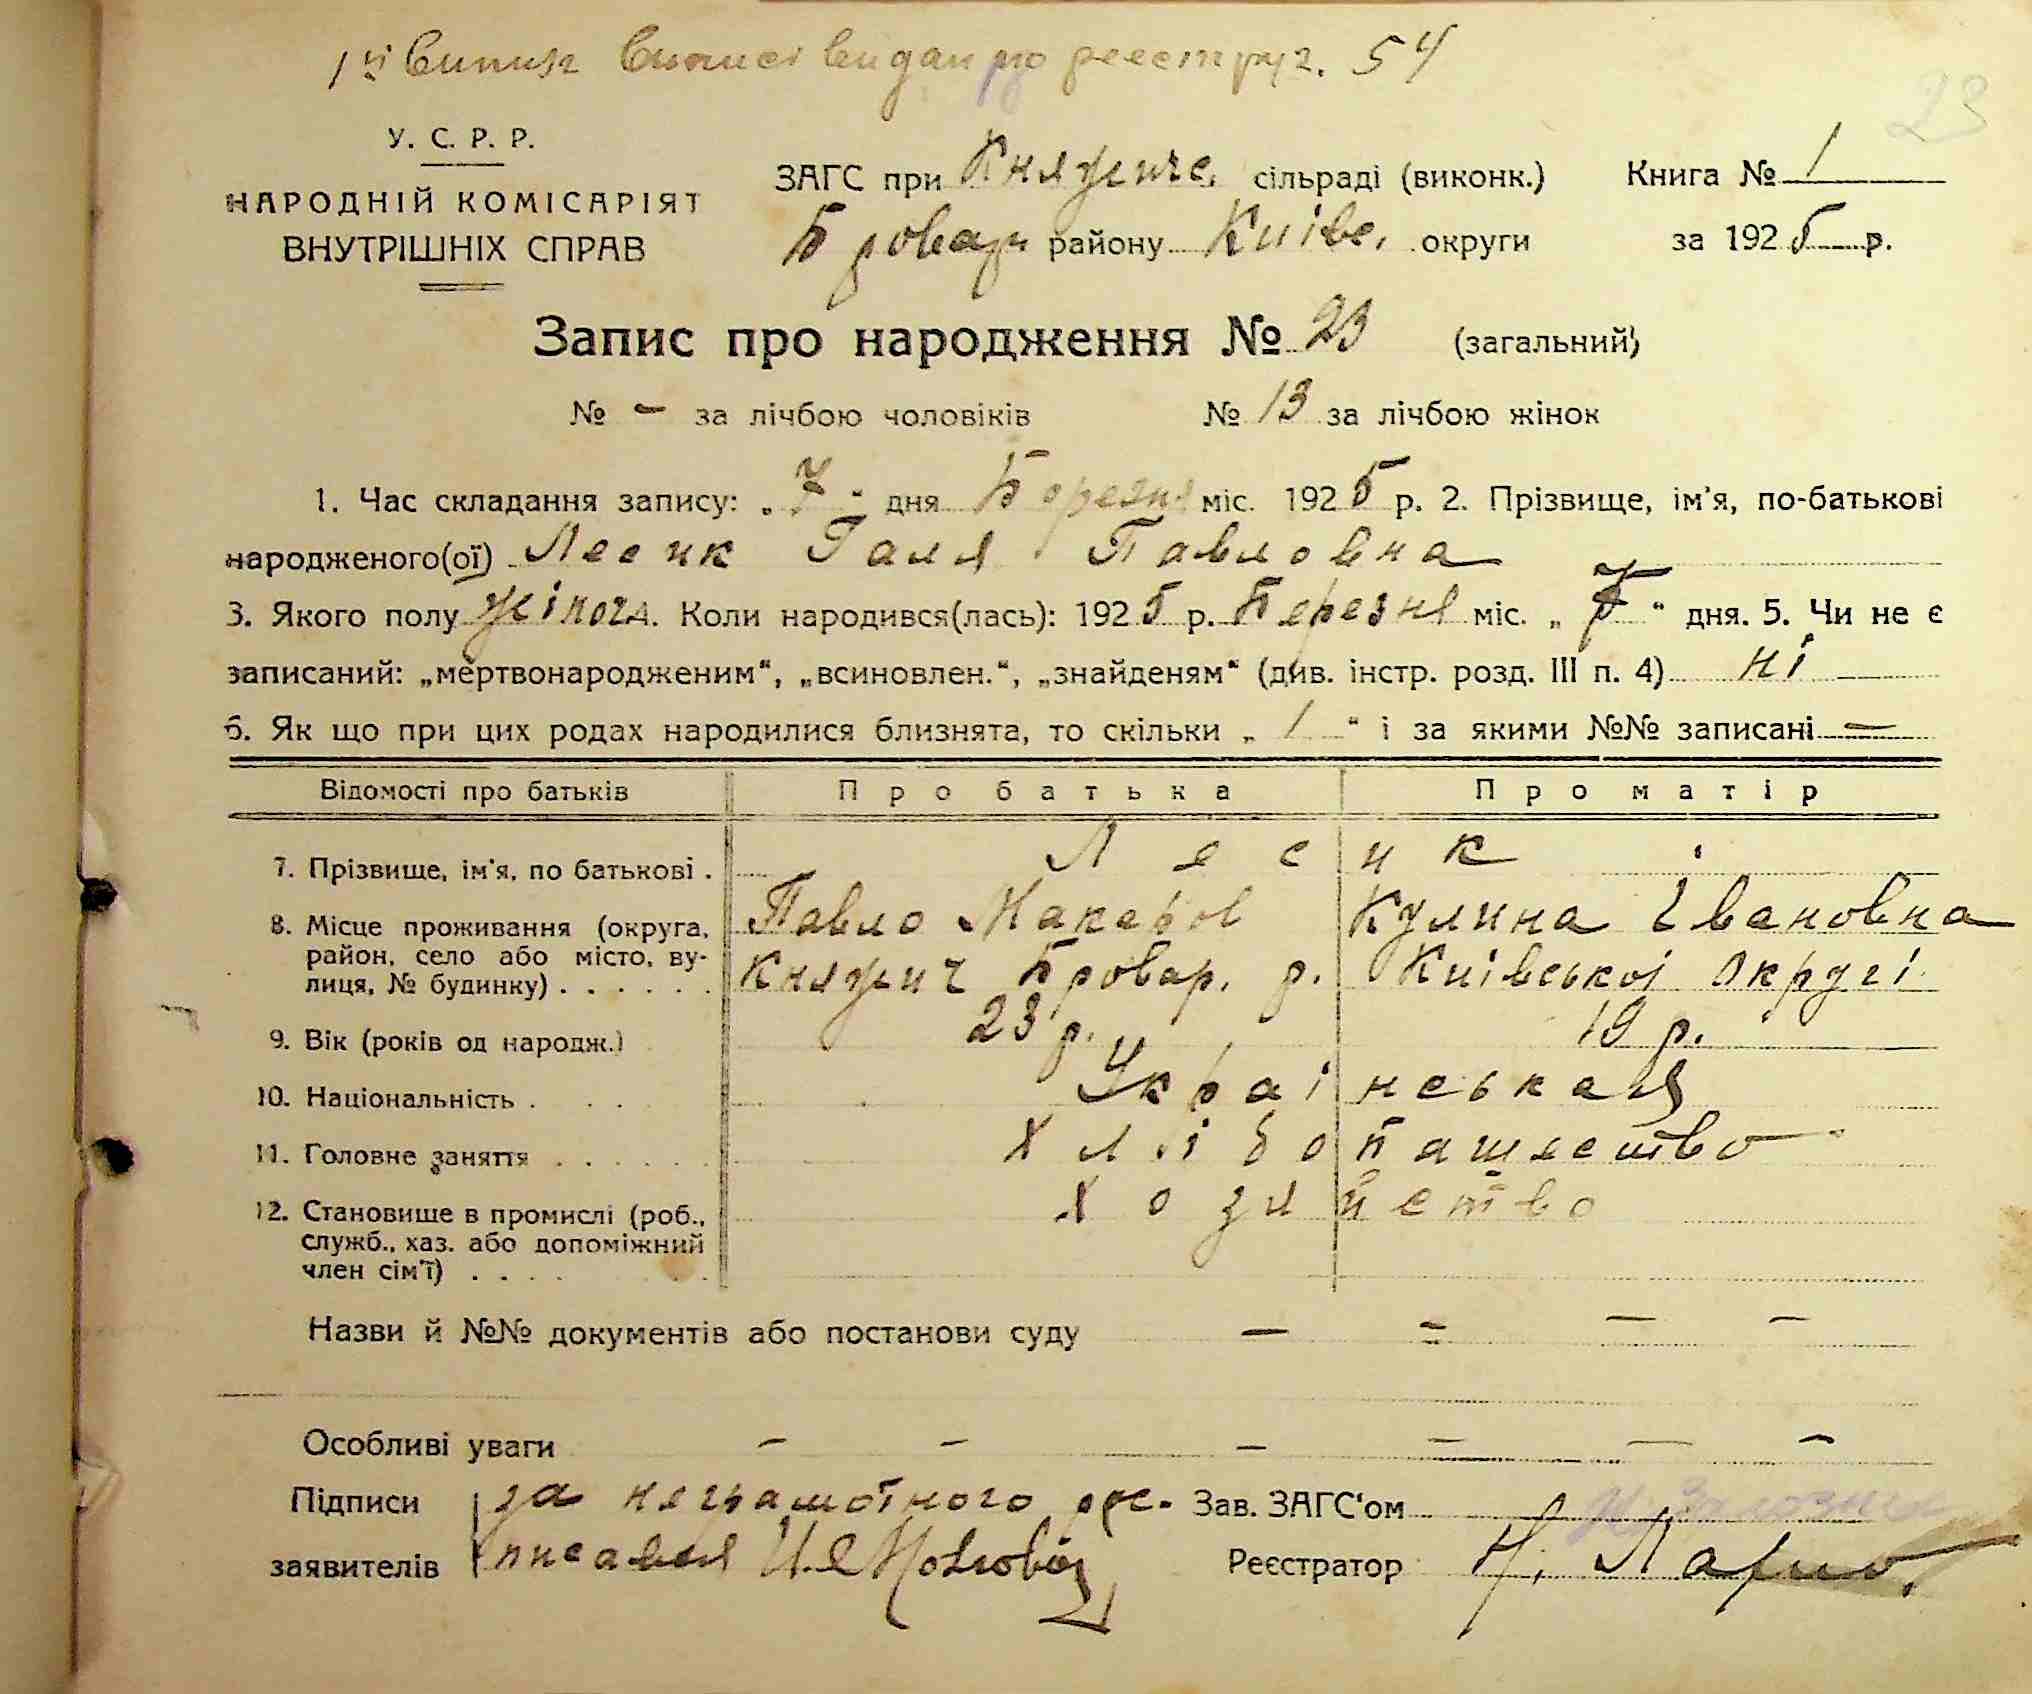 1ий випис виписі видан по реєстру г. 54
23
У. С. Р. Р.
НАРОДНІЙ КОМІСАРІЯТ
ВНУТРІШНІХ СПРАВ
ЗАГС при Княжиче. сільраді (виконк.) Книга № 1
Бровари району Київс. округи за 1925 р.
Запис про народження № 23 (загальний)
№ - за лічбою чоловіків № 13 за лічбою жінок
1. Час складання запису: „7“ дня Березня міс. 1925 р. 2. Прізвище, ім’я, по-батькові
народженого(ої) Лесик Галя Павловна
3. Якого полу жіноч. 4. Коли народився(лась): 1925 р. Березня міс. „7“ дня. 5. Чи не є
записаний: „мертвонародженим“, „всиновлен.“, „знайденям“ (див. інстр. розд. III п. 4) ні
6. Як що при цих родах народилися близнята, то скільки „1“ і за якими №№ записані —
Відомості про батьків Про батька Про матір
7. Прізвище, ім’я, по батькові . Лесик
8. Місце проживання (округа, Павло Макаров Кулина Івановна
район, село або місто, ву- Княжич Бровар. р. Київськоі Округі
лиця, № будинку) . . . . . .
9. Вік (років од народж.) 23 р. 19 р.
10. Національність . . . . Украінськая
11. Головне заняття . . . . . . Хлібопашество
12. Становище в промислі (роб., Хозяйство
служб., хаз. або допоміжний
член сім’ї) . . . .
Назви й №№ документів або постанови суду — = — —
Особливі уваги - - - = — -
Підписи за неграмотного рос- Зав. ЗАГС‘ом
заявителів писался Реєстратор Н.